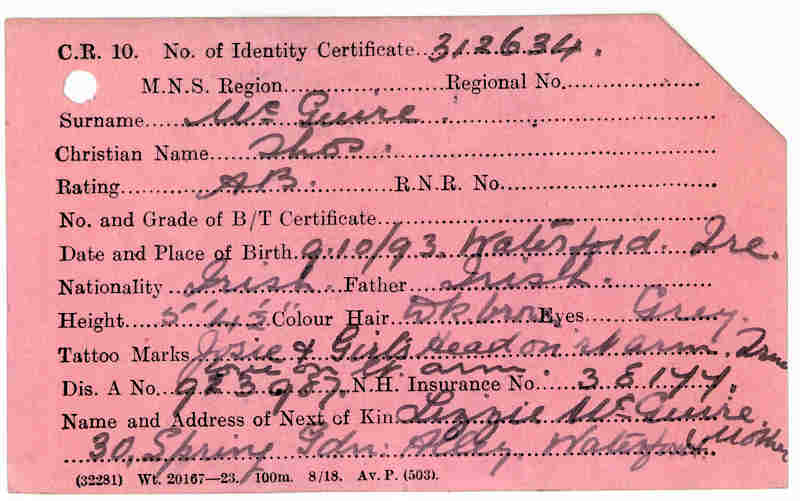 C.R. 10. No. of Identity Certificate 312634.
M.N.S. Region Regional No.
Surname Mc Guire.
Christian Name Thos.
Rating AB. R.N.R. No.
No. and Grade of B/T Certificate
Date and Place of Birth 9.10/93. Waterford. Ire.
Nationality Irish Father Irish.
Height 5' 4½" Colour Hair Dk brow Eyes Grey.
Tattoo Marks Josie & Girls head on rt arm. True
love on lt arm.
Dis. A No. 923987 N.H. Insurance No. 38144.
Name and Address of Next of Kin Lizzie Mc Guire
30, Spring Gdn: Ally Waterford Mother
(32281) Wt. 20167—23. 100m. 8/18. Av. P. (503).